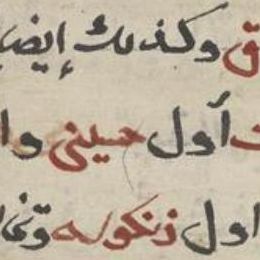 ق وكذلك إيضا
أول حسينى وا
اول زنكوله وتى